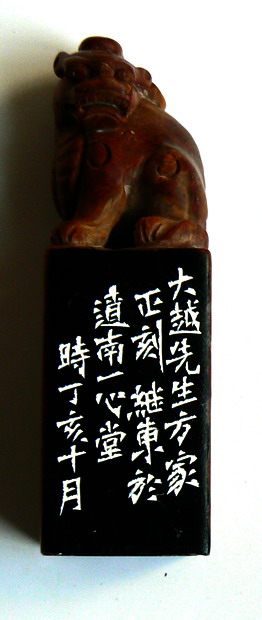 大越先生方家
正刻 继東於
道南一心堂
時丁亥十月